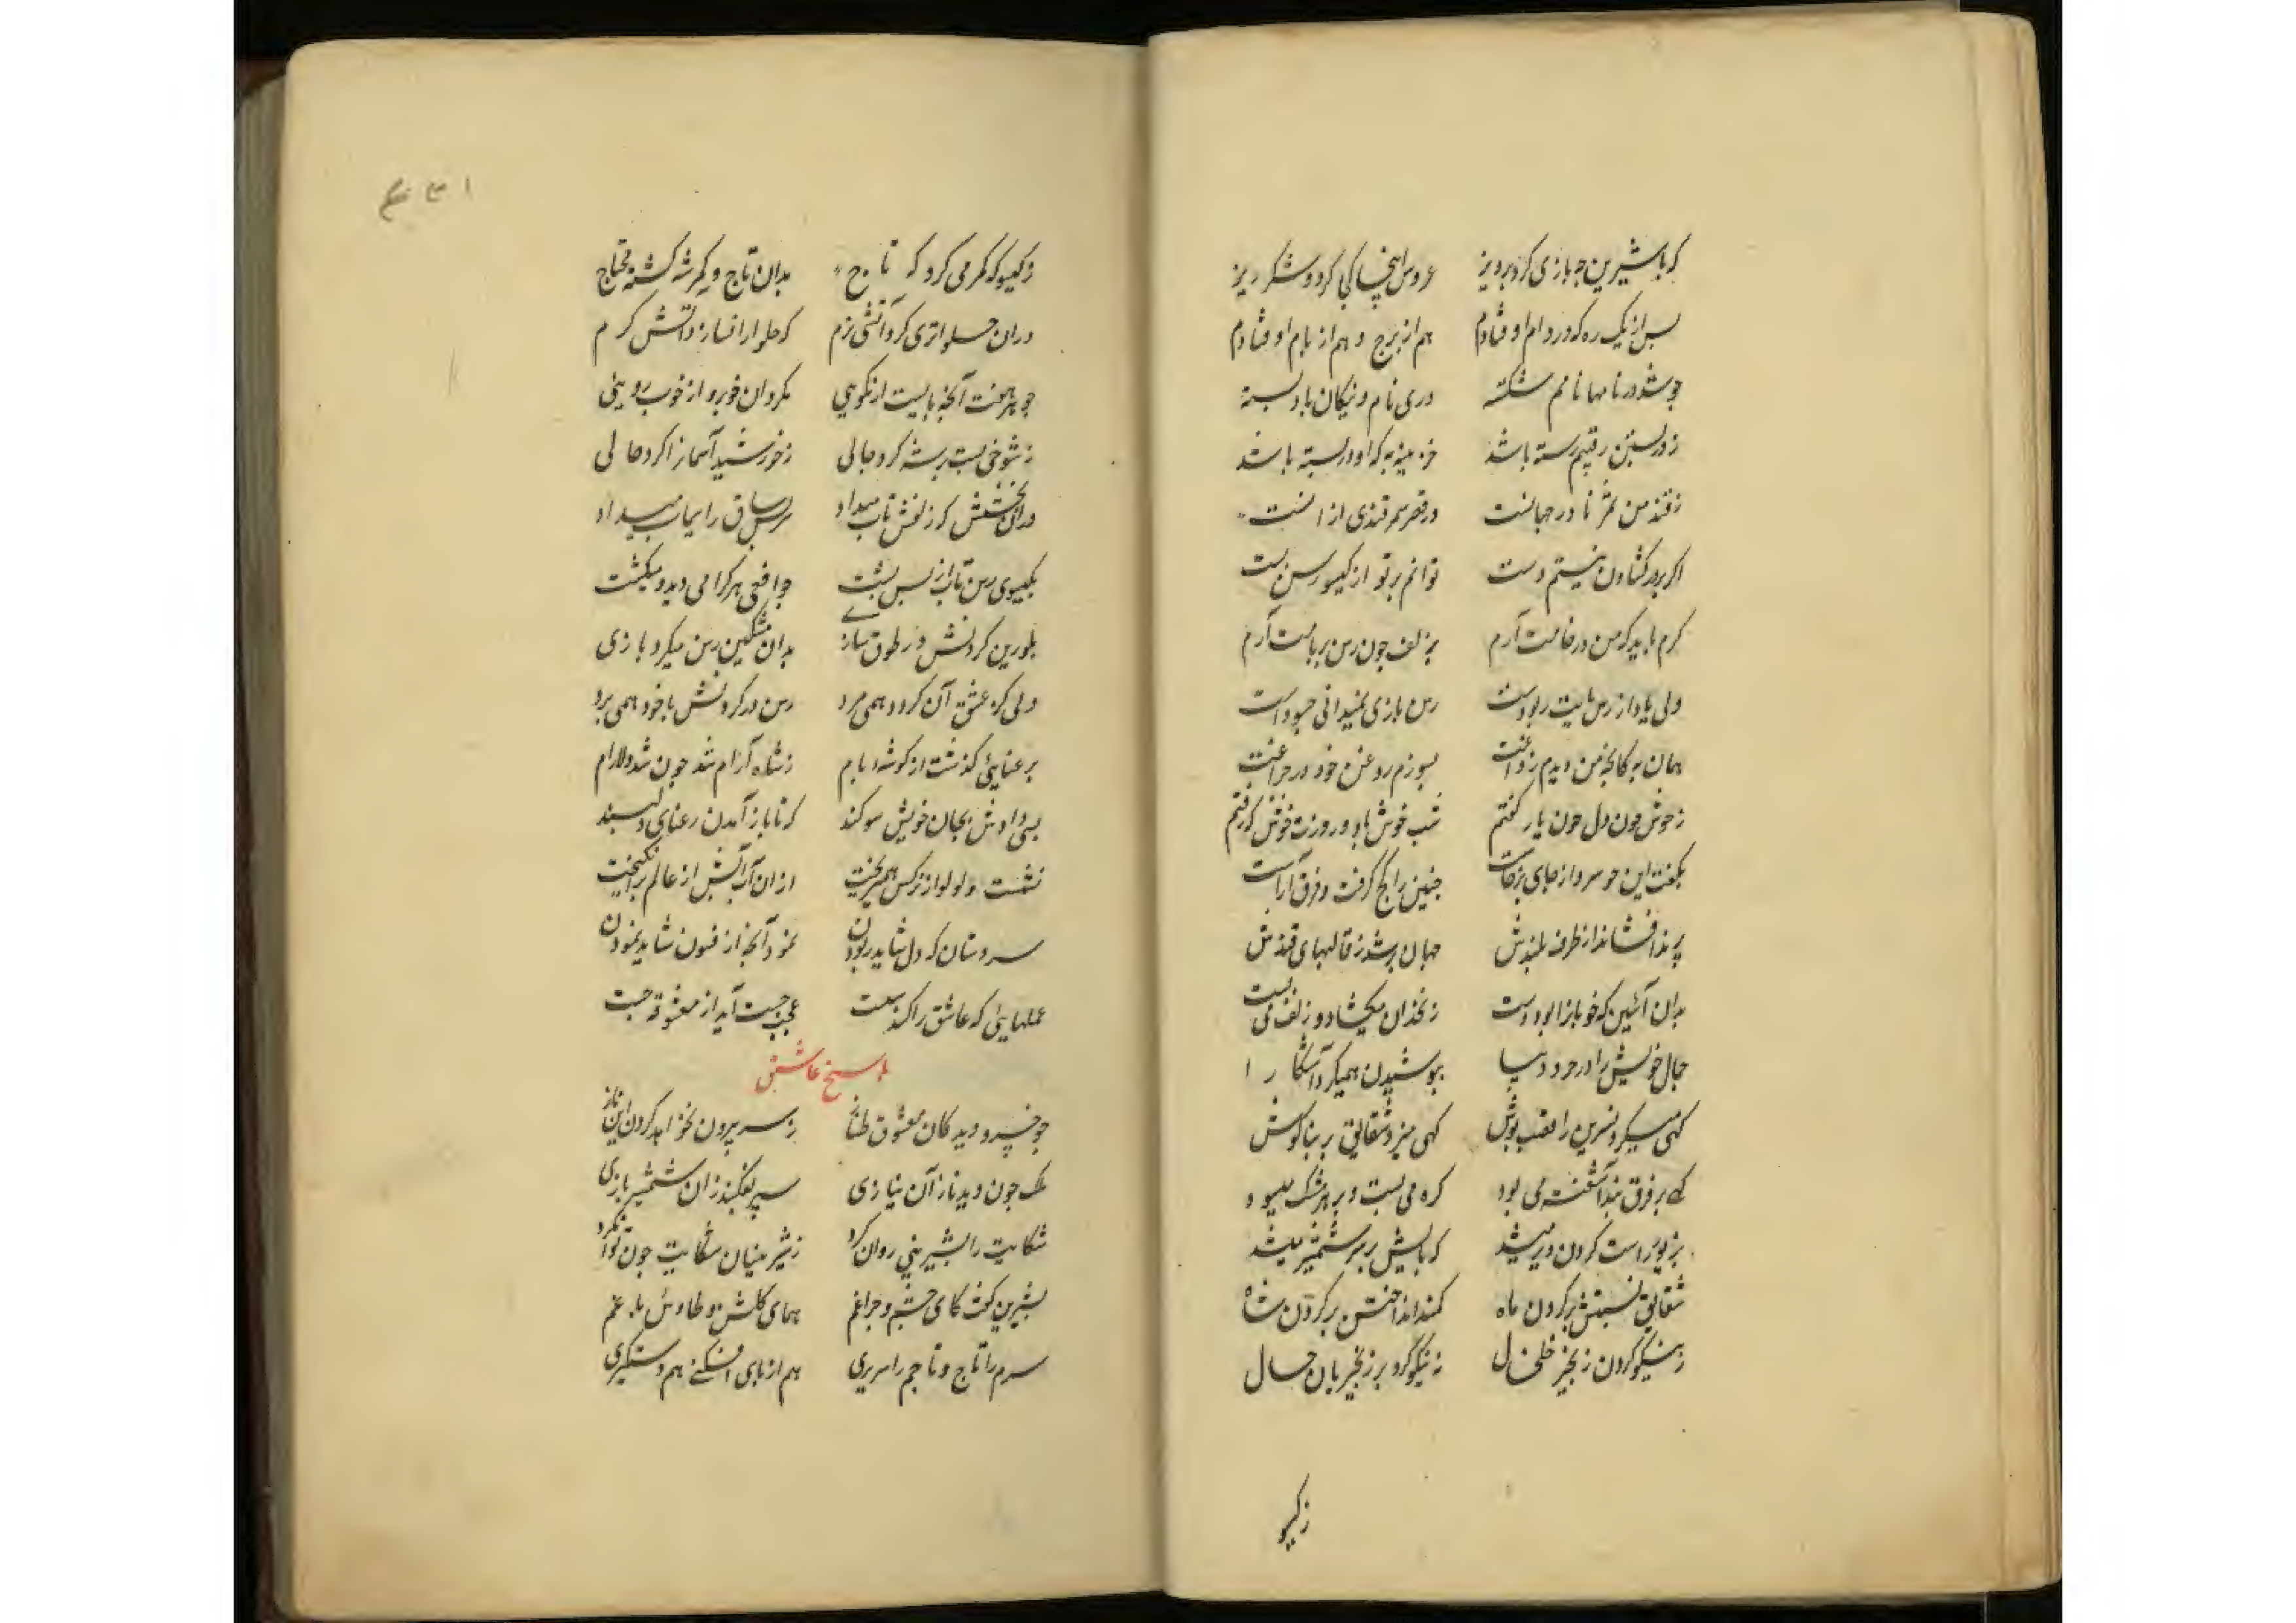 که با شیرین چو بازی کرد پرویز عروس اینجا کی کرد و شکر ریز
پس از یک ره که در دام اوفتادم هم از برج و هم از بام اوفتادم
چو شد در نامها نامم شکسته در بنام و نیکان باد بسته
ز در بستن رقیم رسته باشد خزینه به که او در بسته باشد
ز قند من ثمرنا در جهانست در قصر سمرقندی از انست
اگر بر در کشادن نیستم دست توانم بر تو از کیسو رسن بست
کرم باید که من در خامت آرم بزلف چون رسن بر بامت آرم
ولی باد از رسن پایت ربودست رسن بازی نمیدانی چه سودست
همان به کانچه من دیدم ز داغت بسوزم روغن خود در چراغت
ز جوش خون دل چون باز گفتم شب خوش باد و روزت خوش که رفتم
بگفت این جو سرو از جای برخاست جبین را کج گرفت و فرق آراست
پرند افشاند از طرف بلندش جهان پر شد ز قالبهای قندش
بدان آئین که خوبانرا بود دست زنخدان میکشاد و زلف می بست
جمال خویش را در خز و دیبا بپوشیدن همیکرد آشکارا
کهی میکرد نسرین را قصب پوش کهی میزد شقایق بر بناکوش
کهی بر فرق بند آشفته می بود کره می بست و بر مه مشک میسود
بزیور راست کردن دیر میشد که پایش بر سر شمشیر میشد
شقایق بستنش بر کردن ماه کمند انداختن بر کردن شاه
ز نیکو کردن زنجیر خلخال نه نیکو کرد بر زنجیریان حال
ز کیسو
۴۳۱
ز کیسو که کمر می کرد که تاج بدان تاج و کمر شه کشته محتاج
دران حلواتری کرد آتشی نرم که حلوا را بسازد آتش کرم
چو هر هفت آنچه بایست از نکویی بکرد آن خوبرو از خوب رویی
ز شوخی پشت بر شه کرد حالی ز خورشید آسمانرا کرد خالی
دران بخشش که زلفش تاب میداد سرین ساق را سیماب میداد
بکیسوی رسن تاب از پس پشت چو افعی هر کرا می دید میکشت
بلورین کردنش در طوق سازی بدان مشکین رسن میکرد بازی
دلی کز عشق آن کردن همی مرد رسن در کردنش با خود همی برد
برعنایی کذشت از کوشه بام ز شاه آرام شد چون شد دلارام
بسی دادش بجان خویش سوکند که تا باز آمدن رعنای دلبند
نشست و لولو از نرکس همیریخت ازان آب آتش از عالم برانکیخت
بهر دستان که دل شاید ربودن نمود آنچه از فنون شاید نمودن
عملهایی که عاشق را کند سست عجب چست آید از معشوقه چست
پاسخ عاشق
چو خسرو دید کان معشوق طناز ز سر بیرون نخواهد کردن این ناز
ملک چون دید ناز آن نیازی سپر بفکند زان شمشیر بازی
شکایت را بشیرینی روان کرد ز شیرینان شکایت چون توان کرد
بشیرین گفت کای چشم و چراغم همای کلشن و طاوس باغم
سرم را تاج و تاجم را سریری هم از پای افکنی هم دستکیری